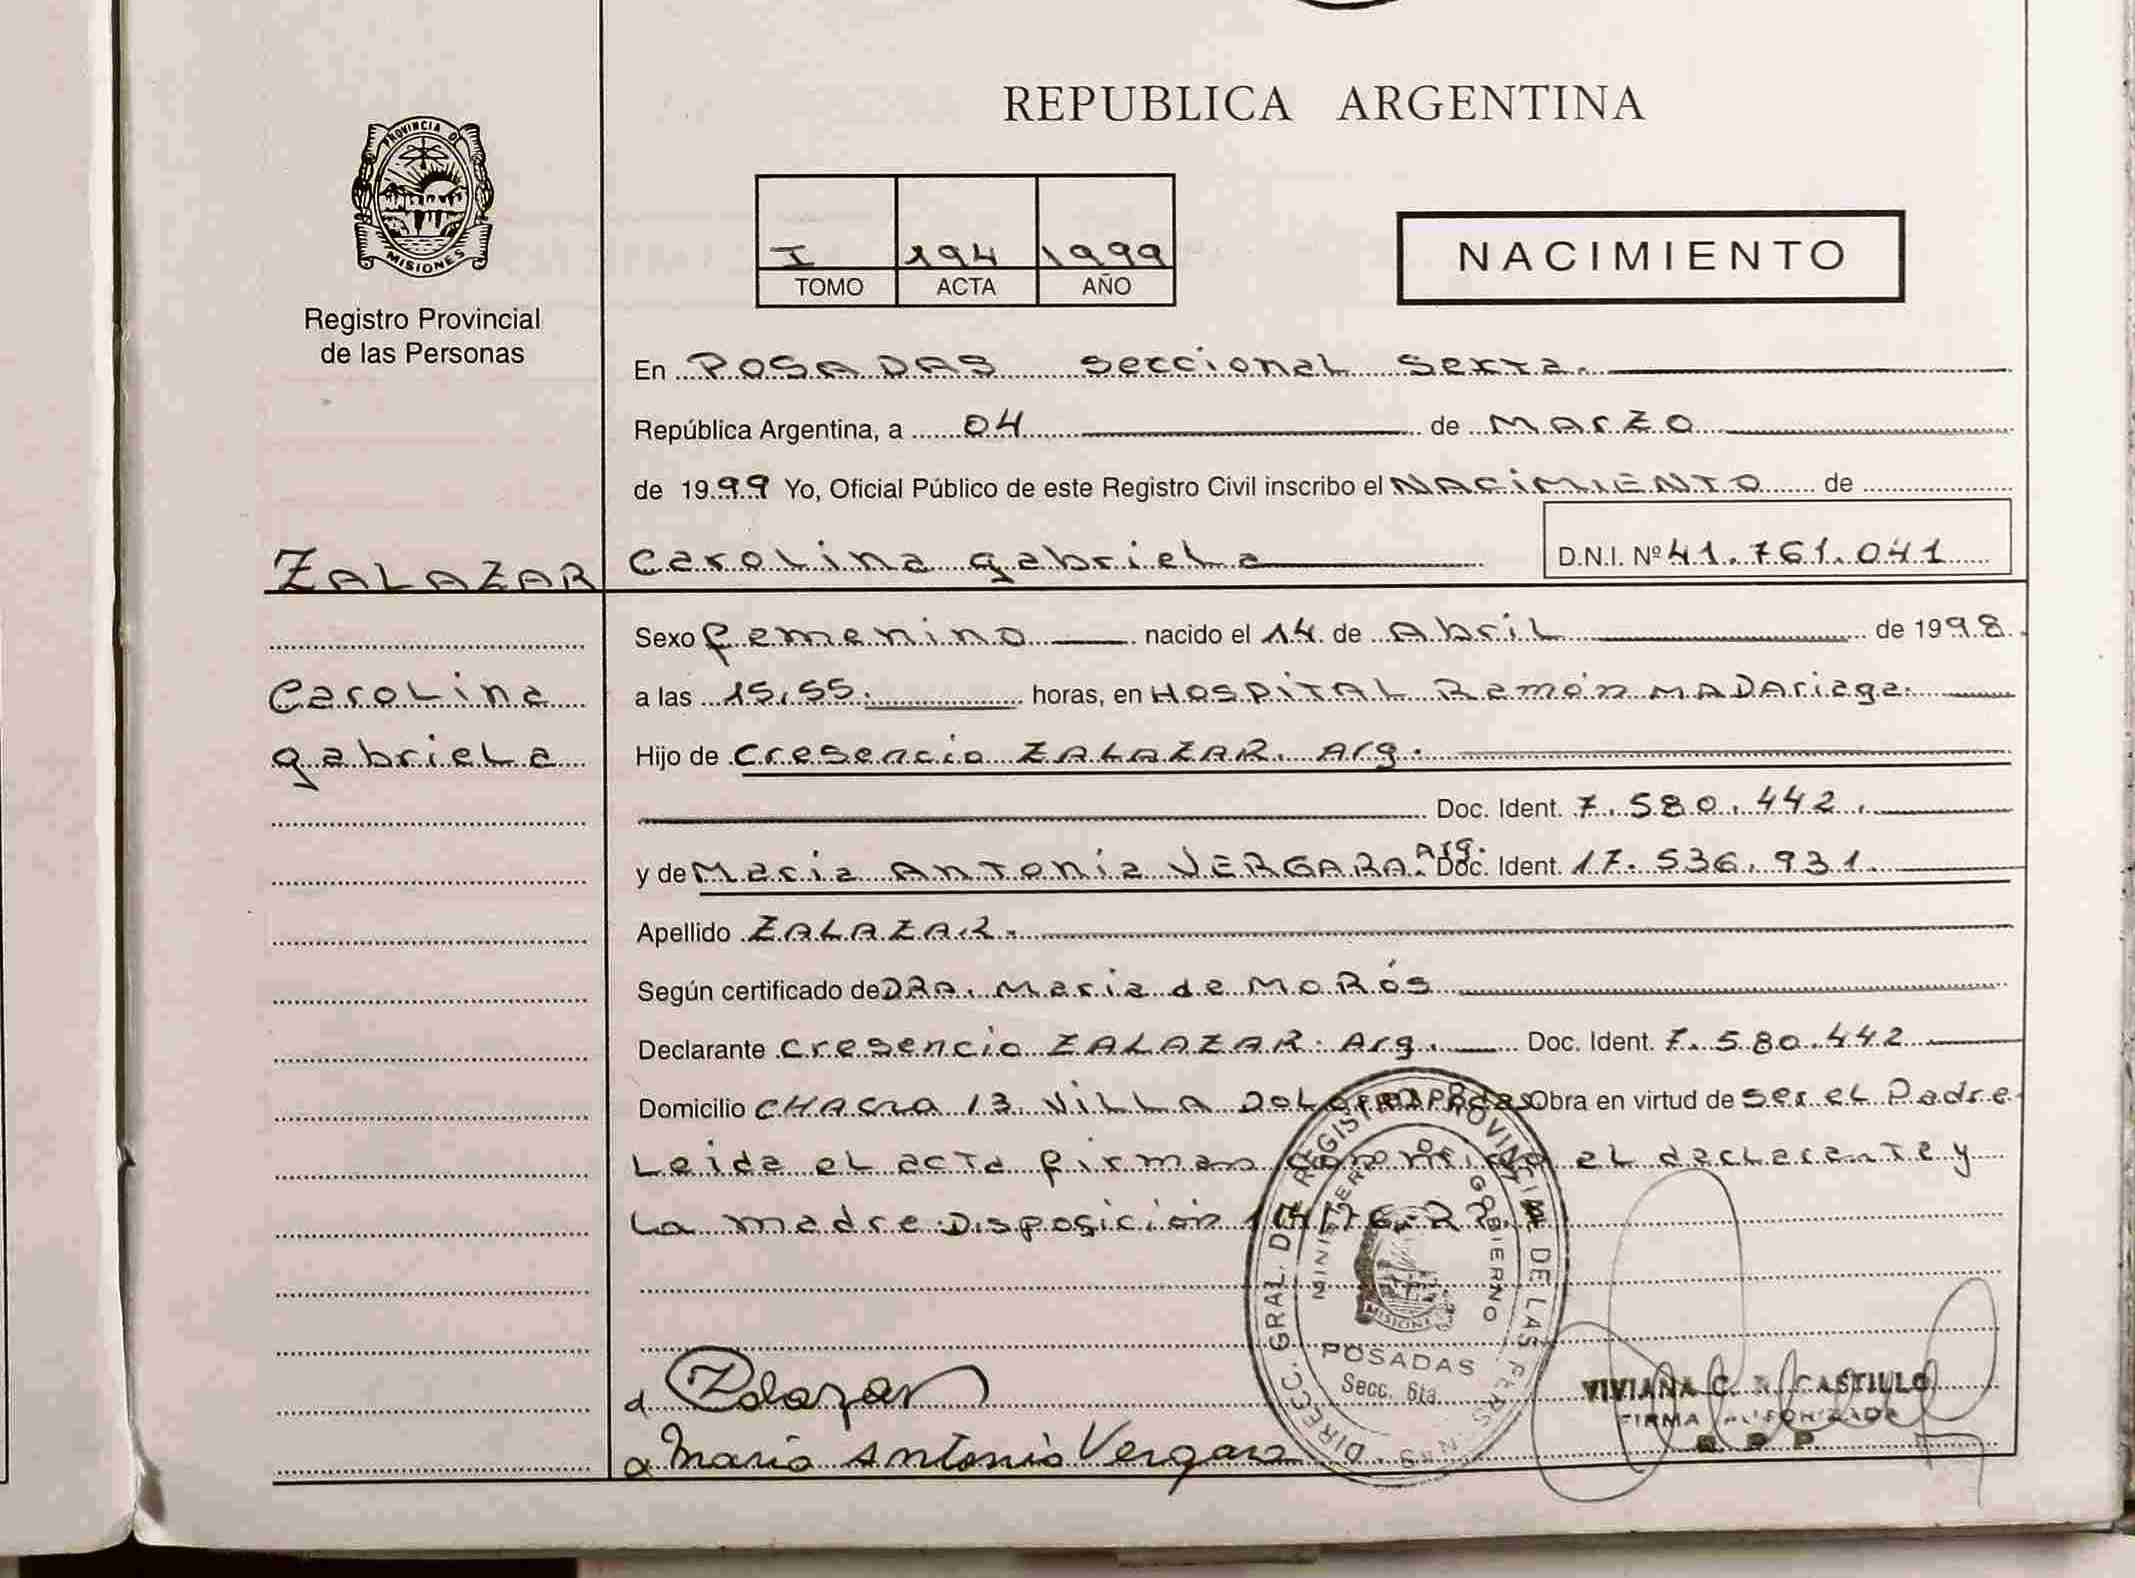 REPUBLICA ARGENTINA
PROVINCIA D MISIONES
Registro Provincial
de las Personas
I 194 1999
TOMO ACTA AÑO
NACIMIENTO
En POSADAS seccional sexta.
República Argentina, a 04 de Marzo
de 1999 Yo, Oficial Público de este Registro Civil inscribo el NACIMIENTO de
ZALAZAR Carolina gabriela D.N.I. Nº 41.761.041
Sexo femenino nacido el 14 de Abril de 1998.
Carolina a las 15,55. horas, en HOSPITAL Ramón MADAriaga.
gabriela Hijo de Cresencio ZALAZAR. Arg.
Doc. Ident. 7.580.442.
y de Maria ANTONia VERGARA. Arg. Doc. Ident. 17.536.931.
Apellido ZALAZAR.
Según certificado de DRA. Maria de MORós
Declarante Cresencio ZALAZAR. Arg. Doc. Ident. 7.580.442
Domicilio CHACRA 13 VILLA DOLORES Obra en virtud de ser el Padre
Leida el acta firman el declarante y
La madre Disposición
DIRECC. GRAL. DE REGISTRO PROVINCIAL DE LAS PERSONAS
MINISTERIO DE GOBIERNO
MISIONES
POSADAS
Secc. 6ta.
Zalazar
VIVIANA C. CASTILLO
FIRMA AUTORIZADA
Maria Antonia Vergara